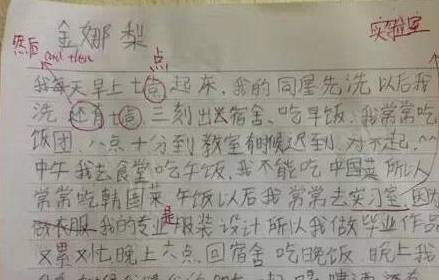 金娜梨
然后 and then 点 实验室
我每天早上七点起床,我的同屋先洗以后我
洗 还有七点三刻出去宿舍、吃早饭.我常常吃
饭团.八点十分到教室有时候迟到.对不起.^^
中午我去食堂吃午饭,我不能吃中国菜所以
常常吃韩国菜 午饭以后我常常去实习室.因为
做衣服 我的专业是服装设计所以我做毕业作品
又累又忙晚上六点回宿舍吃晚饭 晚上我